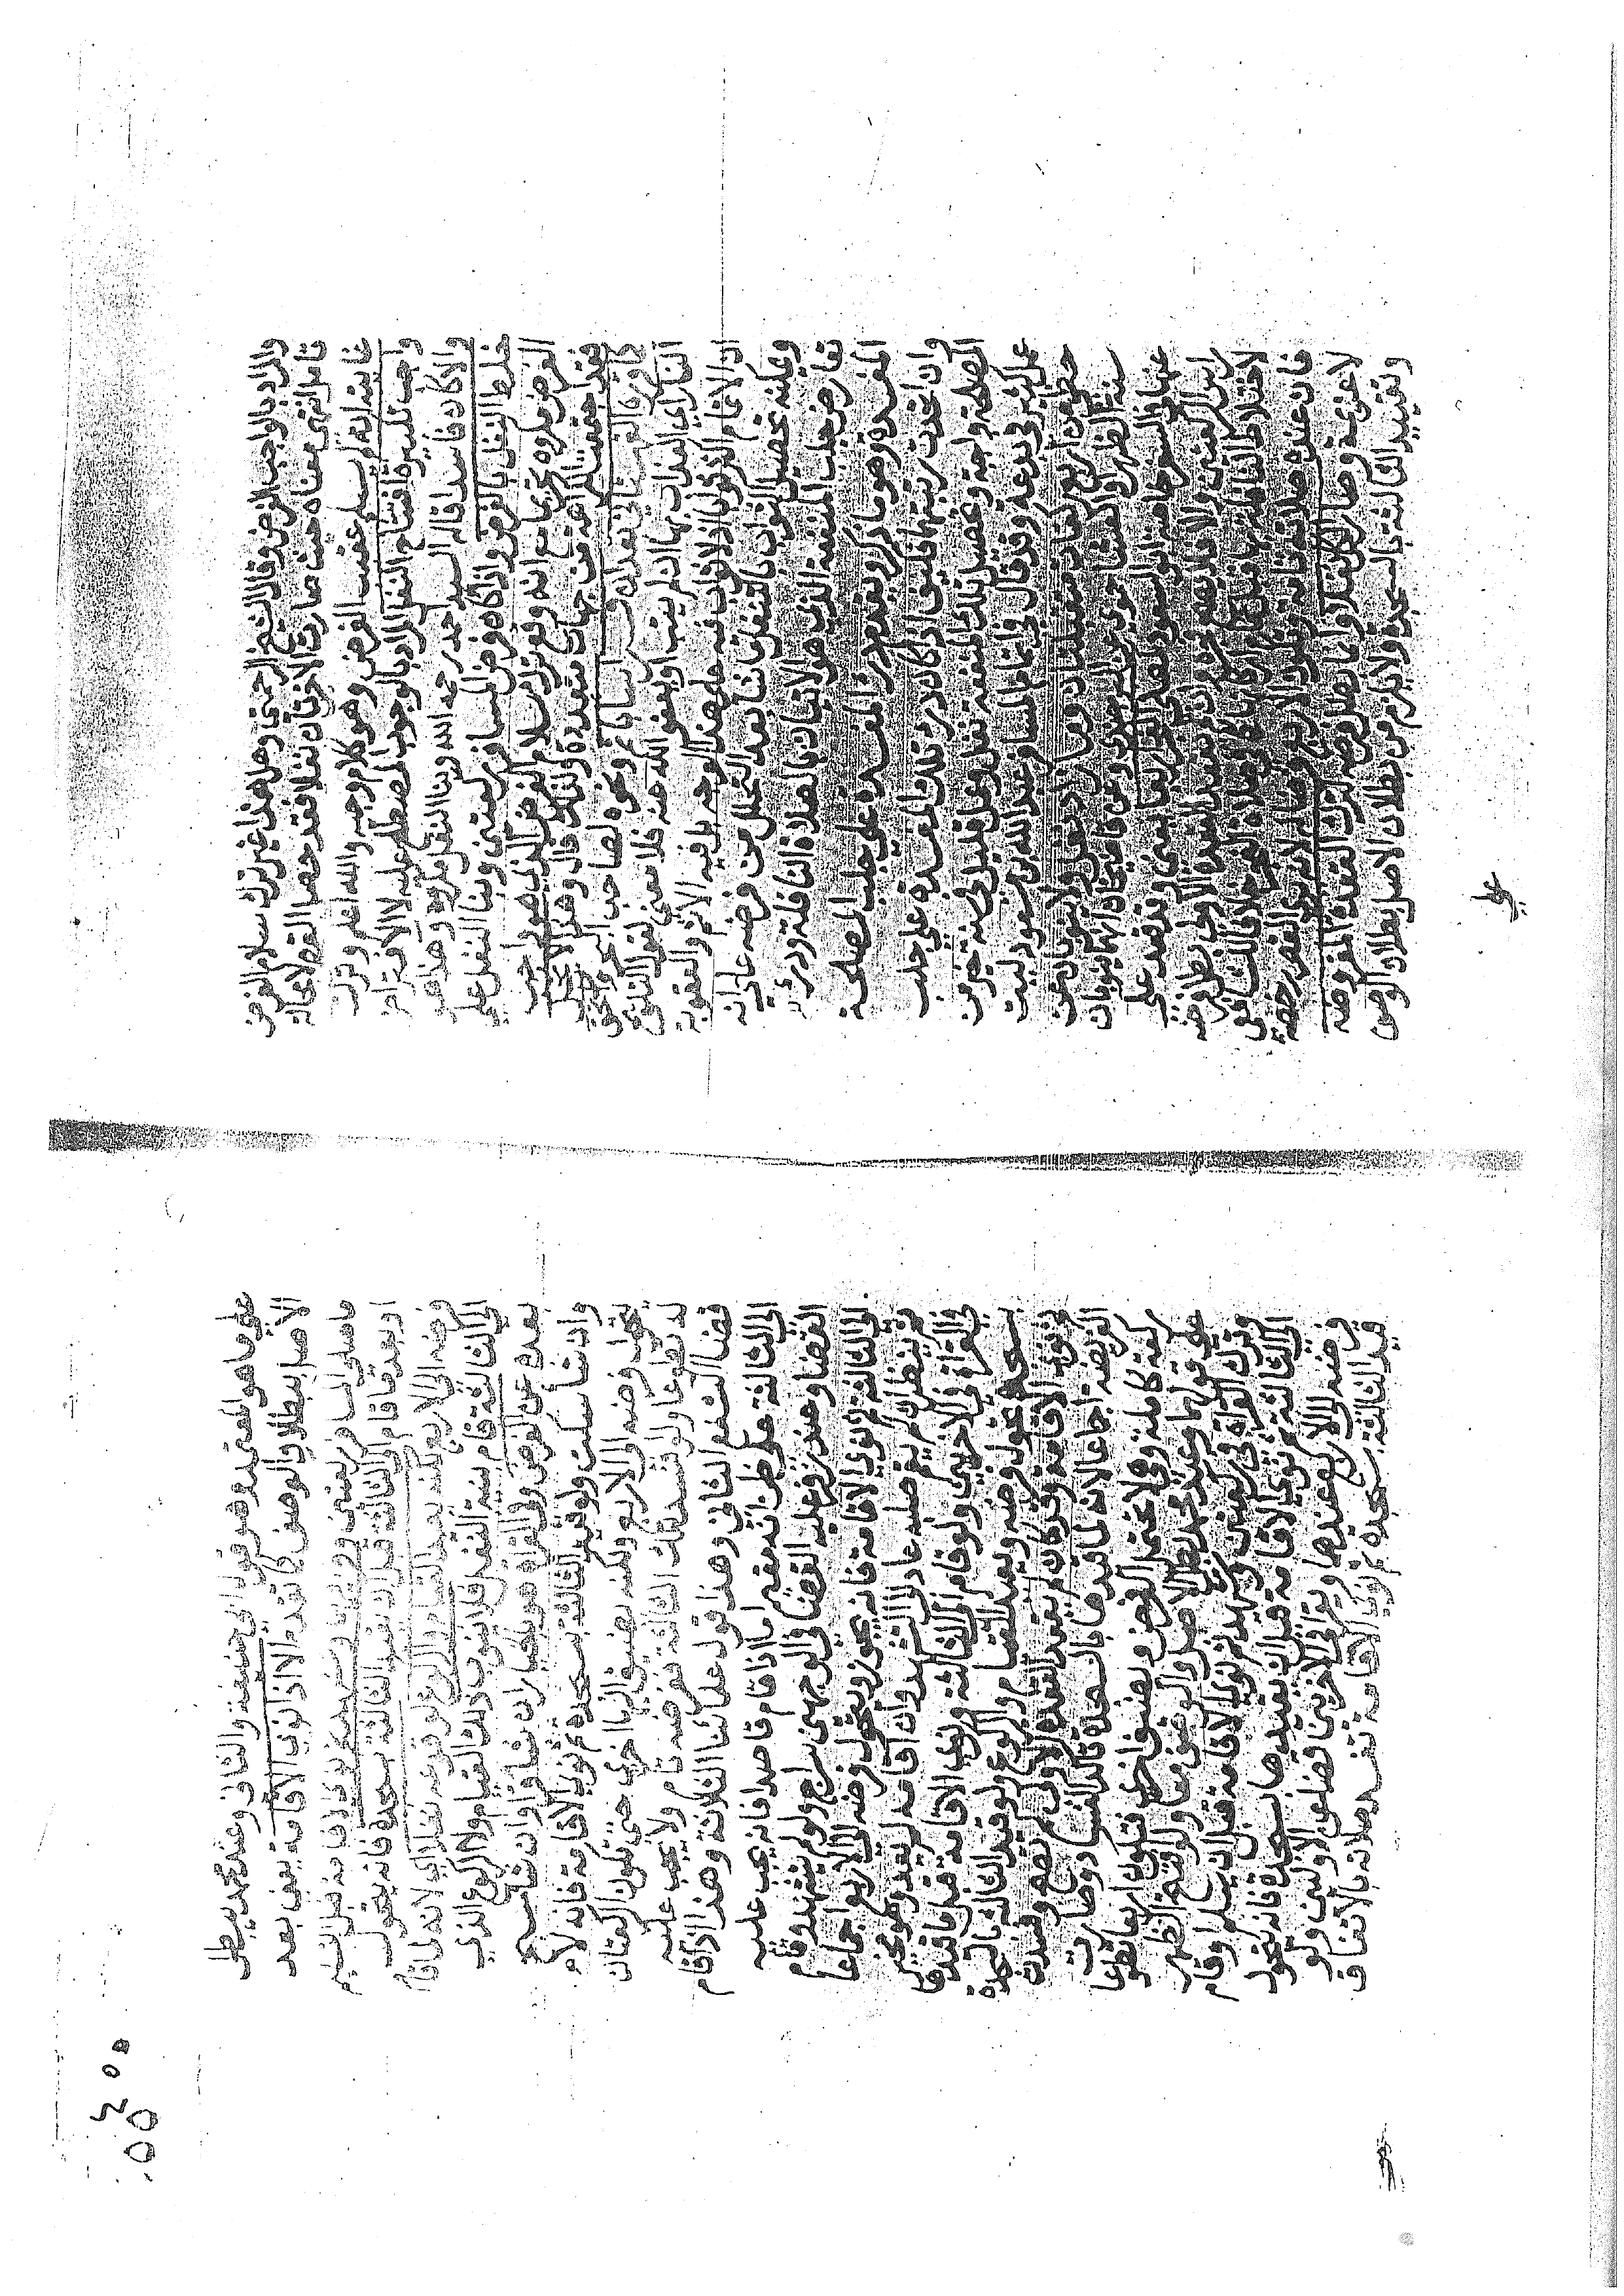 والمراد بالواجب الفرض وقال الشيخ الرحمتي وهل هذا غير ترك سلام الفرض
تأمل انتهى معناه حيث صارت الاخريان نفلا فقد حصل القول لا محالة
غايته انه لم يسلم عقب الفرض وهو كلام وجيه والله اعلم وترك
واجب تكبيرة افتتاح النفل المراد بالوجوب المصطلح عليه لا الافتراض
والا كان فاسدا قاله السيد احمد رحمه الله وبنا النفل مكروه وهذا هو
خلط النفل بالفرض واذا كان فرض المسافر ركعتين وبنا النفل على
الفرض مكروه تحريما مع انه وقع ترك سلام الفرض الذي هو واجب
فقد اجتمعت الكراهة من جهات متعددة ولذلك قال وهذا لا يحل
كما حرره القهستاني بعد ان فسر اساء باثم ونحوه لصاحب البحر واستحق
النار اي العذاب بها ان لم يتب او يعفو الله عنه فلا معنى لقول البلوي
ان الاتمام الذكور اذ لا ثواب فيه على هذا الوجه بل فيه الاثم والعقوبة
ويمكنه تحصيل الثواب بالتنفل ثانيا بعد التحلل من فرضه على انه
تعارض جلب المنفعة الذي هو الاتيان بالصلاة النافلة ودرء
المفسدة وهو ما ذكر ويقدم درء المفسدة على جلب المصلحة
وان اتحدت رتبتها فكيف اذا كان درء تلك المفسدة على جلب
المصلحة واجبة وتحصيل تلك المنفعة نفل وعمل قليل في سنة خير من
عمل كثير في بدعة وقد قال في اتمام المسافر عبد الله بن مسعود ليت
حظي من اربع ركعات متقبلتان وما زاد نفل ولا ينوبان عن
سنة الظهر او العشا جوي على المجتبى وعن قاضيخان انهما ينوبان
عنها في السفر حاشية ابو السعود لمصلي الفجر اربعا يعني وقد قعد على
راس الركعتين والا فلا يصح شيء وان لم يقعد القعدة الاولى بطل فرضه
لاختلاط النافلة بها قبل كمال اركانها كما في صلاة الفجر خلافا لمالك
فان عنده صلاته تامة وتكون الاربع فرضا له لانه يرى القصر رخصة
لا عزيمة وصار الكل نفلا وانما بطل فرضه لترك القعدة المفروضة
وتقييد الثالثة بالسجدة ولا يلزم من بطلان الاصل بطلان الوصف
على
على ما هو المعتمد وهو قول ابي حنيفة والثاني وعند محمد يبطل
الاصل ببطلان الوصف كما تقدم الا اذا نوى الاقامة يعني بعد
ما صلى المسافر ركعتين ولم يتشهد ثم نوى الاقامة قبل التسليم
او بعد ما قام الى الثالثة قبل ان يقيد الثالثة بسجدة فانه يتحول
فرضه الى الاربع لكنه يعيد القيام والركوع لوقوعه نفلا اي لانه لما قام
الى الثالثة قام بنية التنفل فلا ينوب ذلك القيام ولا الركوع الذي
بعده عن الفرض وفي القراة هو بالخيار ان شا قرا وان شا سبح
وان شا سكت ولو قيد الثالثة بسجدة ثم نوى الاقامة فانه لا
يتحول فرضه الى الاربع ولكنه يضيف اليها اخرى حتى تكون الركعتان
له تطوعا ولو تشهد تلك الثالثة ففرضه تام ولا يجب عليه
قضا الشفع الثاني وهذا قول علمائنا الثلاثة وهذا اذا قام
الى الثالثة على ظن انه مقيم اما اذا قام قاصدا فانه يجب عليه
القضا وعند زفر عليه القضا في الوجهين سراج ولو لم يتشهد وقام
الى الثالثة ثم نوى الاقامة فانه يجوز ويتحول فرضه الى الاربع اجماعا
ثم ينظر ان لم يقم صلبه عاد الى التشهد وان اقامه لم يعد وهو مخير
في القراة في الاخريين ولو قام الى الثالثة ونوى الاقامة قبل ما قيدها
بسجدة تحول فرضه ويعيد القيام والركوع ولو قيد الثالثة بالسجدة
ثم نوى الاقامة وقد كان لم يقعد القعدة الاولى لم تصح وفسدت
الفريضة اجماعا لانه لما قيدها بالسجدة تاكد الفساد وصارت
ركعة كاملة وهي لا تحتمل الرفض ويضيف اخرى فتكون اربعا تطوعا
على قولهما وعند محمد بطل الاصل والوصف معا ولو افتتح الظهر
وترك القراة في ركعتين وتشهد ثم نوى الاقامة قبل ان يسلم او قام
الى الثالثة ثم نوى الاقامة قبل ان يقيدها بسجدة فانه يتحول
فرضه الى الاربع عندهما ويقرا في الاخريين قضا عن الاوليين ولو
قيد الثالثة بسجدة ثم نوى الاقامة تفسد صلاته بالاتفاق